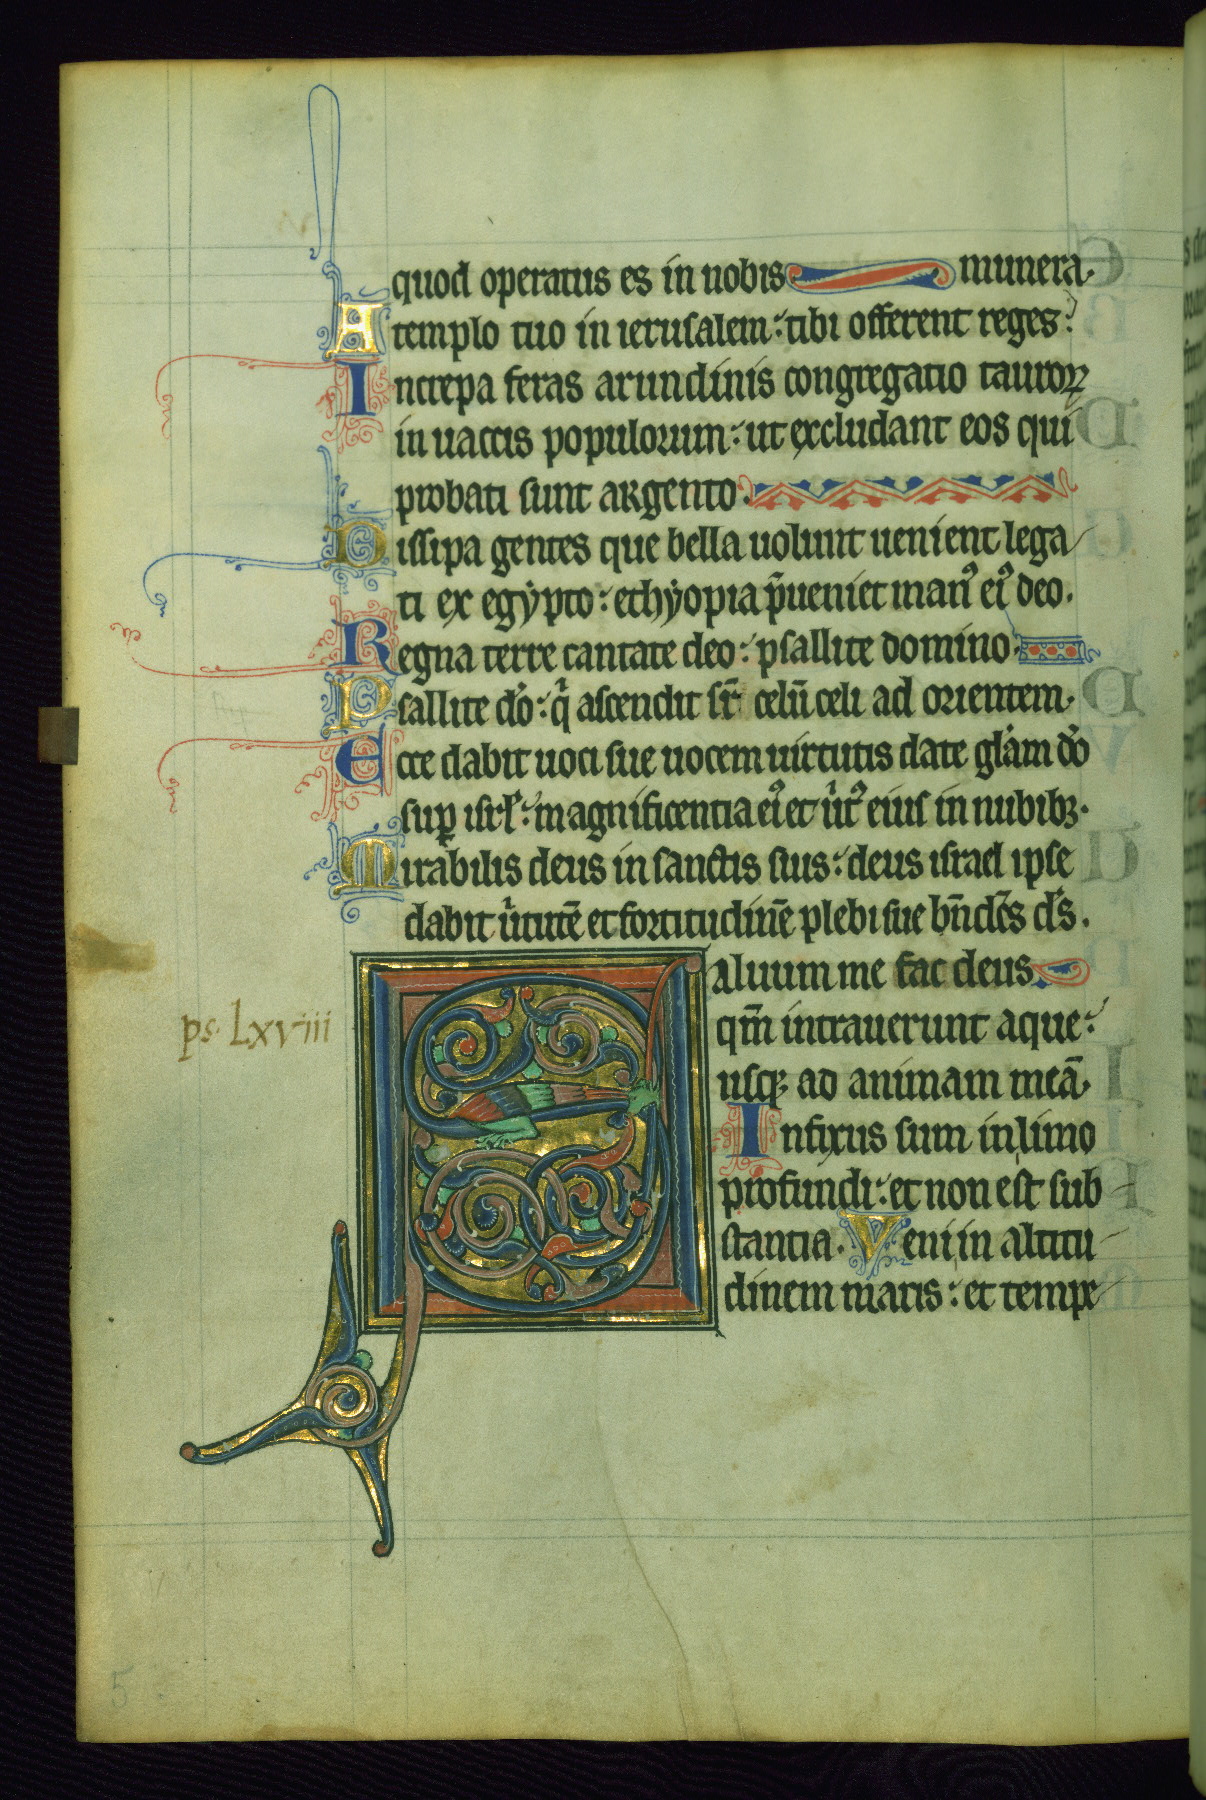 quod operatus es in nobis munera.
A templo tuo in ierusalem: tibi offerent reges
Increpa feras arundinis congregatio tauroꝝ
in uaccis populorum: ut excludant eos qui
probati sunt argento.
Dissipa gentes que bella uolunt uenient lega
ti ex egypto: ethyopia p̄ueniet manꝰ eiꝰ deo.
Regna terre cantate deo: psallite domino.
Psallite do: q̇ ascendit sr̄ celū celi ad orientem.
Ecce dabit uoci sue uocem uirtutis date gl̄am do
suꝑ isrl̓: magnificentia eiꝰ et u̇tꝰ eius in nubibꝫ.
Mirabilis deus in sanctis suis: deus israel ipse
dabit u̇tutē et fortitudinē plebi sue bn̄dc̄s ds̄.
Saluum me fac deus
qm̄ intrauerunt aque:
usqꝫ ad animam meā.
Infixus sum in limo
ps. Lxviii
profundi: et non est sub
stantia. Veni in altitu
dinem maris: et tempe
5